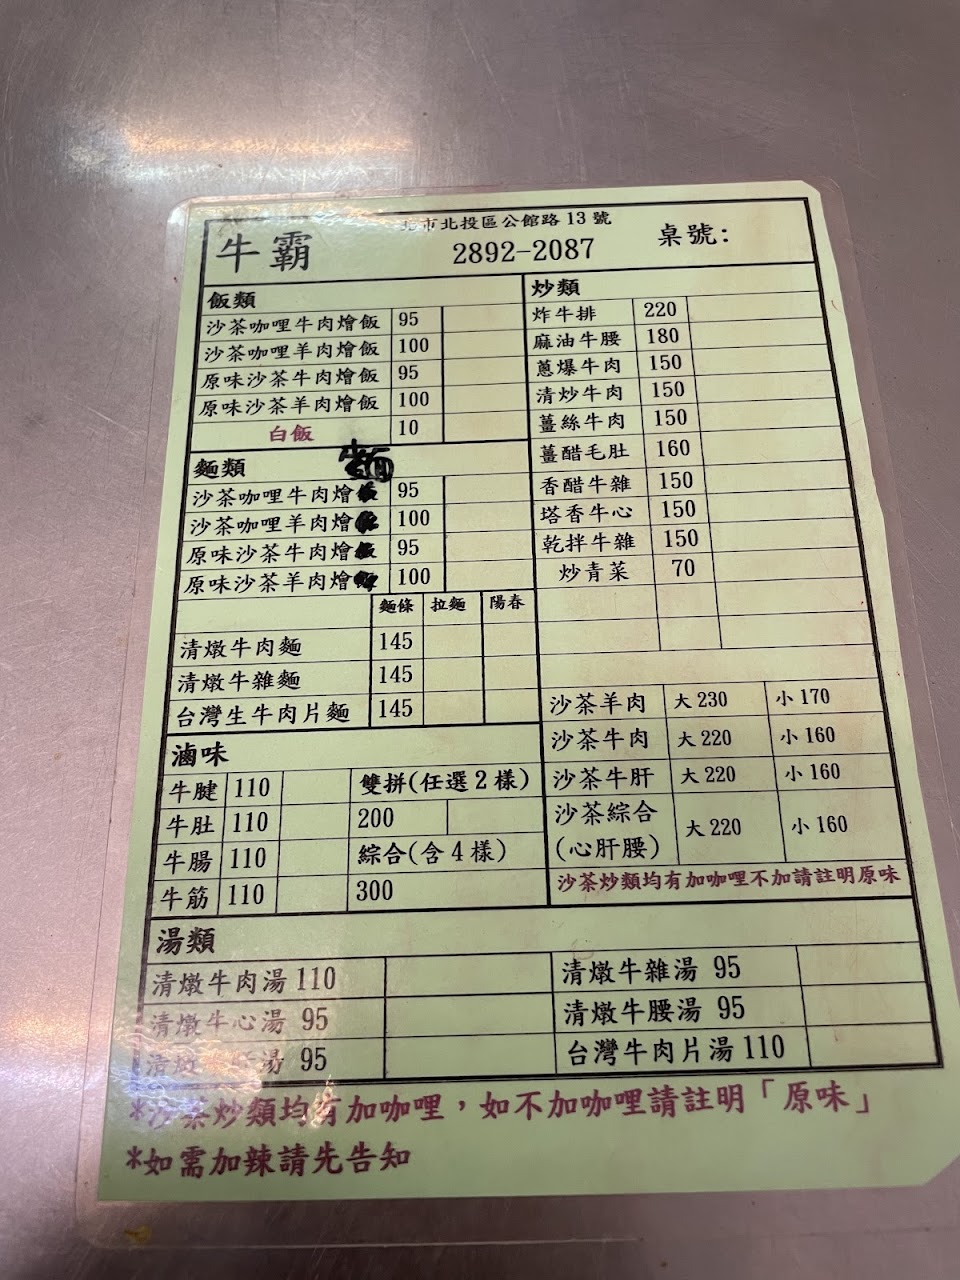 牛霸
市北投區公館路 13 號
2892-2087
桌號:
飯類
沙茶咖哩牛肉燴飯 95
沙茶咖哩羊肉燴飯 100
原味沙茶牛肉燴飯 95
原味沙茶羊肉燴飯 100
白飯 10
麵類
麵
沙茶咖哩牛肉燴 95
沙茶咖哩羊肉燴 100
原味沙茶牛肉燴 95
原味沙茶羊肉燴 100
麵條 拉麵 陽春
清燉牛肉麵 145
清燉牛雜麵 145
台灣生牛肉片麵 145
滷味
牛腱 110 雙拼(任選2樣)
牛肚 110 200
牛腸 110 綜合(含4樣)
牛筋 110 300
炒類
炸牛排 220
麻油牛腰 180
蔥爆牛肉 150
清炒牛肉 150
薑絲牛肉 150
薑醋毛肚 160
香醋牛雜 150
塔香牛心 150
乾拌牛雜 150
炒青菜 70
沙茶羊肉 大230 小170
沙茶牛肉 大220 小160
沙茶牛肝 大220 小160
沙茶綜合
(心肝腰) 大220 小160
沙茶炒類均有加咖哩不加請註明原味
湯類
清燉牛肉湯 110 清燉牛雜湯 95
清燉牛心湯 95 清燉牛腰湯 95
清燉肝湯 95 台灣牛肉片湯 110
*沙茶炒類均有加咖哩，如不加咖哩請註明「原味」
*如需加辣請先告知